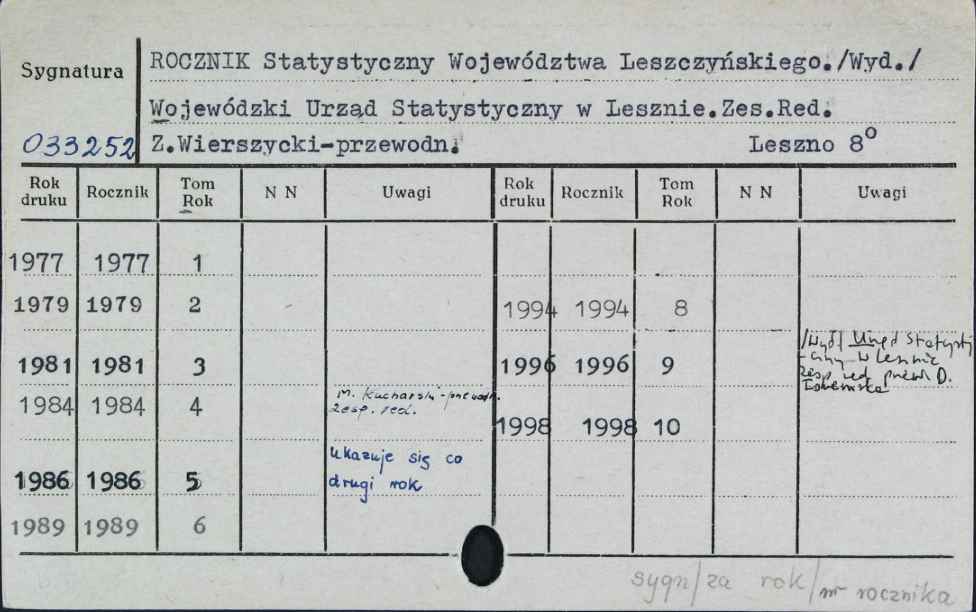 Sygnatura
ROCZNIK Statystyczny Województwa Leszczyńskiego./Wyd./
Wojewódzki Urząd Statystyczny w Lesznie.Zes.Red.
033252 Z.Wierszycki-przewodn. Leszno 8°
Rok druku Rocznik Tom Rok N N Uwagi Rok druku Rocznik Tom Rok N N Uwagi
1977 1977 1
1979 1979 2 1994 1994 8
1981 1981 3 1996 1996 9 /Wyd/ Urząd Statysty
-czny w Lesznie
zesp red przew D.
1984 1984 4 M. Kucharski-przewodn.
zesp. red.
1998 1998 10
ukazuje się co
1986 1986 5 drugi rok
1989 1989 6
sygn/za rok/nr rocznika